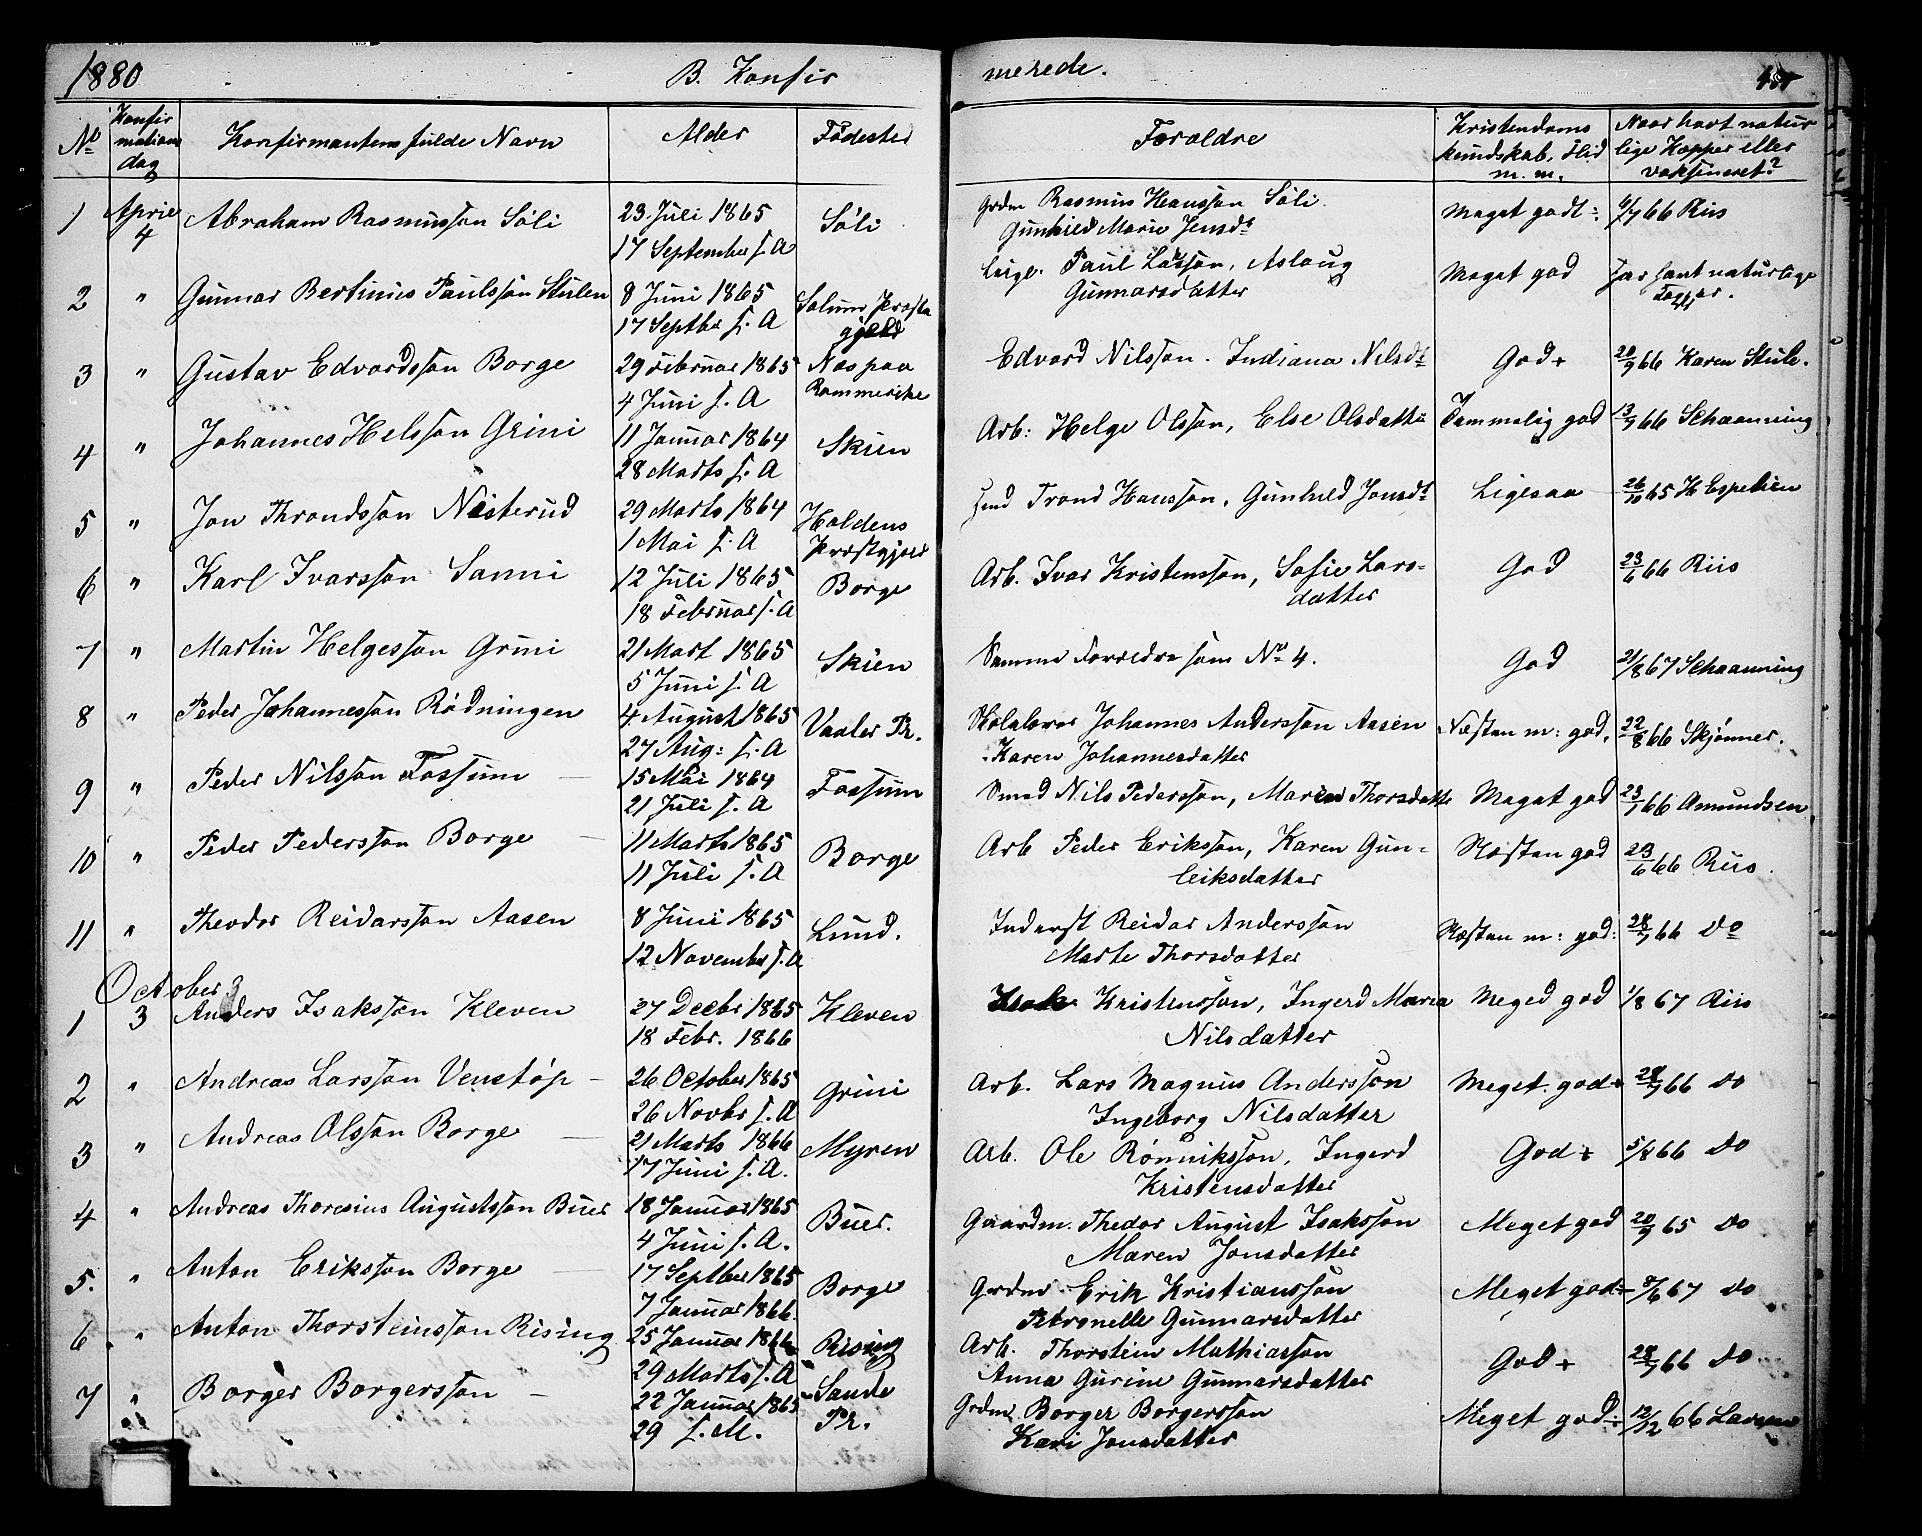 1880 B. Konfirmerede.
No Konfirmations dag Konfirmantens fulde Navn Alder Fødested Forældre Kristendoms kundskab, flid m. m. Naar havt naturlige Kopper eller vaksineret?
1 April 4 Abraham Rasmusson Sóli 23. Juli 1865 Sóli Grdm Rasmus Hansson Sóli Meget godt ÷ 66 Riis
17 September s. A Gunhild Marie Jensdt
2 " Gunnar Bertinius Paulsson Stulen 8 Juni 1865 Solum Præste Leige. Paul Larsson, Aslaug Meget god har havt naturlige
17 Septbr s. A gjeld Gunnarsdatter Kopper.
3 " Gustav Edvardsson Borge 29 Februar 1865 Næs paa Edvard Nilsson. Indiana Nilsdt God + 20/9 66 Karen Stule.
4 Juni s. A Rommerike
4 " Johannes Helsson Grini 11 Januar 1864 Skien Arb: Helge Olsson, Else Olsdatter Temmelig god 13/7 66 Schaanning
28 Marts s. A
5 " Jon Throndsson Nisterud 29 Marts 1864 Holdens Trond Hansson, Gunhild Jonsdt Ligesaa 26/10 65 H Espelien
1 Mai s. A Præstgjeld
6 " Karl Ivarsson Sanni 12 Juli 1865 Borge Arb. Ivar Kristensson, Sofie Lars- God 23/6 66 Riis
18 Februar s. A datter
7 " Martin Helgesson Grini 21 Mart 1865 Skien Samme Forreldre som No 4. God 21/8 67 Schaanning
5 Juni s. A
8 " Peder Johannesson Rødningen 4 August 1865 Vaaler Pr. Johannes Andersson Aasen Næsten m: god. 22/8 66 Skjønner.
27 Aug: s. A Karen Johannesdatter
9 " Peder Nilsson Fossum 15 Mai 1864 Fossum Smed Nils Pedersson, Maren Thorsdatter Meget god 23/7 66 Amundsen
21 Juli s. A
10 " Peder Pedersson Borge 11 Marts 1865 Borge Arb Peder Eriksson, Karen Gun- Næsten god 23/6 66 Riis.
11 Juli s. A leiksdatter
11 " Theodor Reidarsson Aasen 8 Juni 1865 Lund. Inderst Reidar Andersson Næsten m: god: 28/7 66 Do
12 November s. A Marte Thorsdatter
October
1 3 Anders Isaksson Kleven 27 Decbr 1865 Kleven Isak Kristensson, Ingerd Maria Meged god 1/8 67 Riis
18 Febr. 1866 Nilsdatter
2 " Andreas Larsson Venstøp 26 October 1865 Grini Arb. Lars Magnus Andersson Meget god + 28/7 66 Do
26 Novbr s. A Ingeborg Nilsdatter
3 " Andreas Olsson Borge 21 Marts 1866 Myren Arb. Ole Rønniksson, Ingerd God + 5/8 66 Do
17 Juni s. A. Kristensdatter
4 " Andreas Thoresius Augustsson Buer 18 Januar 1865 Buer. Gaardm. Thedor August Isaksson Meget god 20/9 65 Do
4 Juni s. A. Maren Jonsdatter
5. " Anton Eriksson Borge 17 Septber 1865 Borge Grdm Erik Kristiansson Meget god ÷ 67 Do
7 Januar 1866. Petronelle Gunnarsdatter
6 " Anton Thorsteinsson Rising 25 Januar 1866 Rising Arb. Thorstein Mathiasson God + 28/7 66 Do
29 Marts s. A Anna Gurine Gunnarsdatter
7 " Borger Borgersson 22 Januar 1865 Sande Grdm Borger Borgersson Meget god ÷ 12/12 66
29 s. M. Pr. Kari Jonsdatter